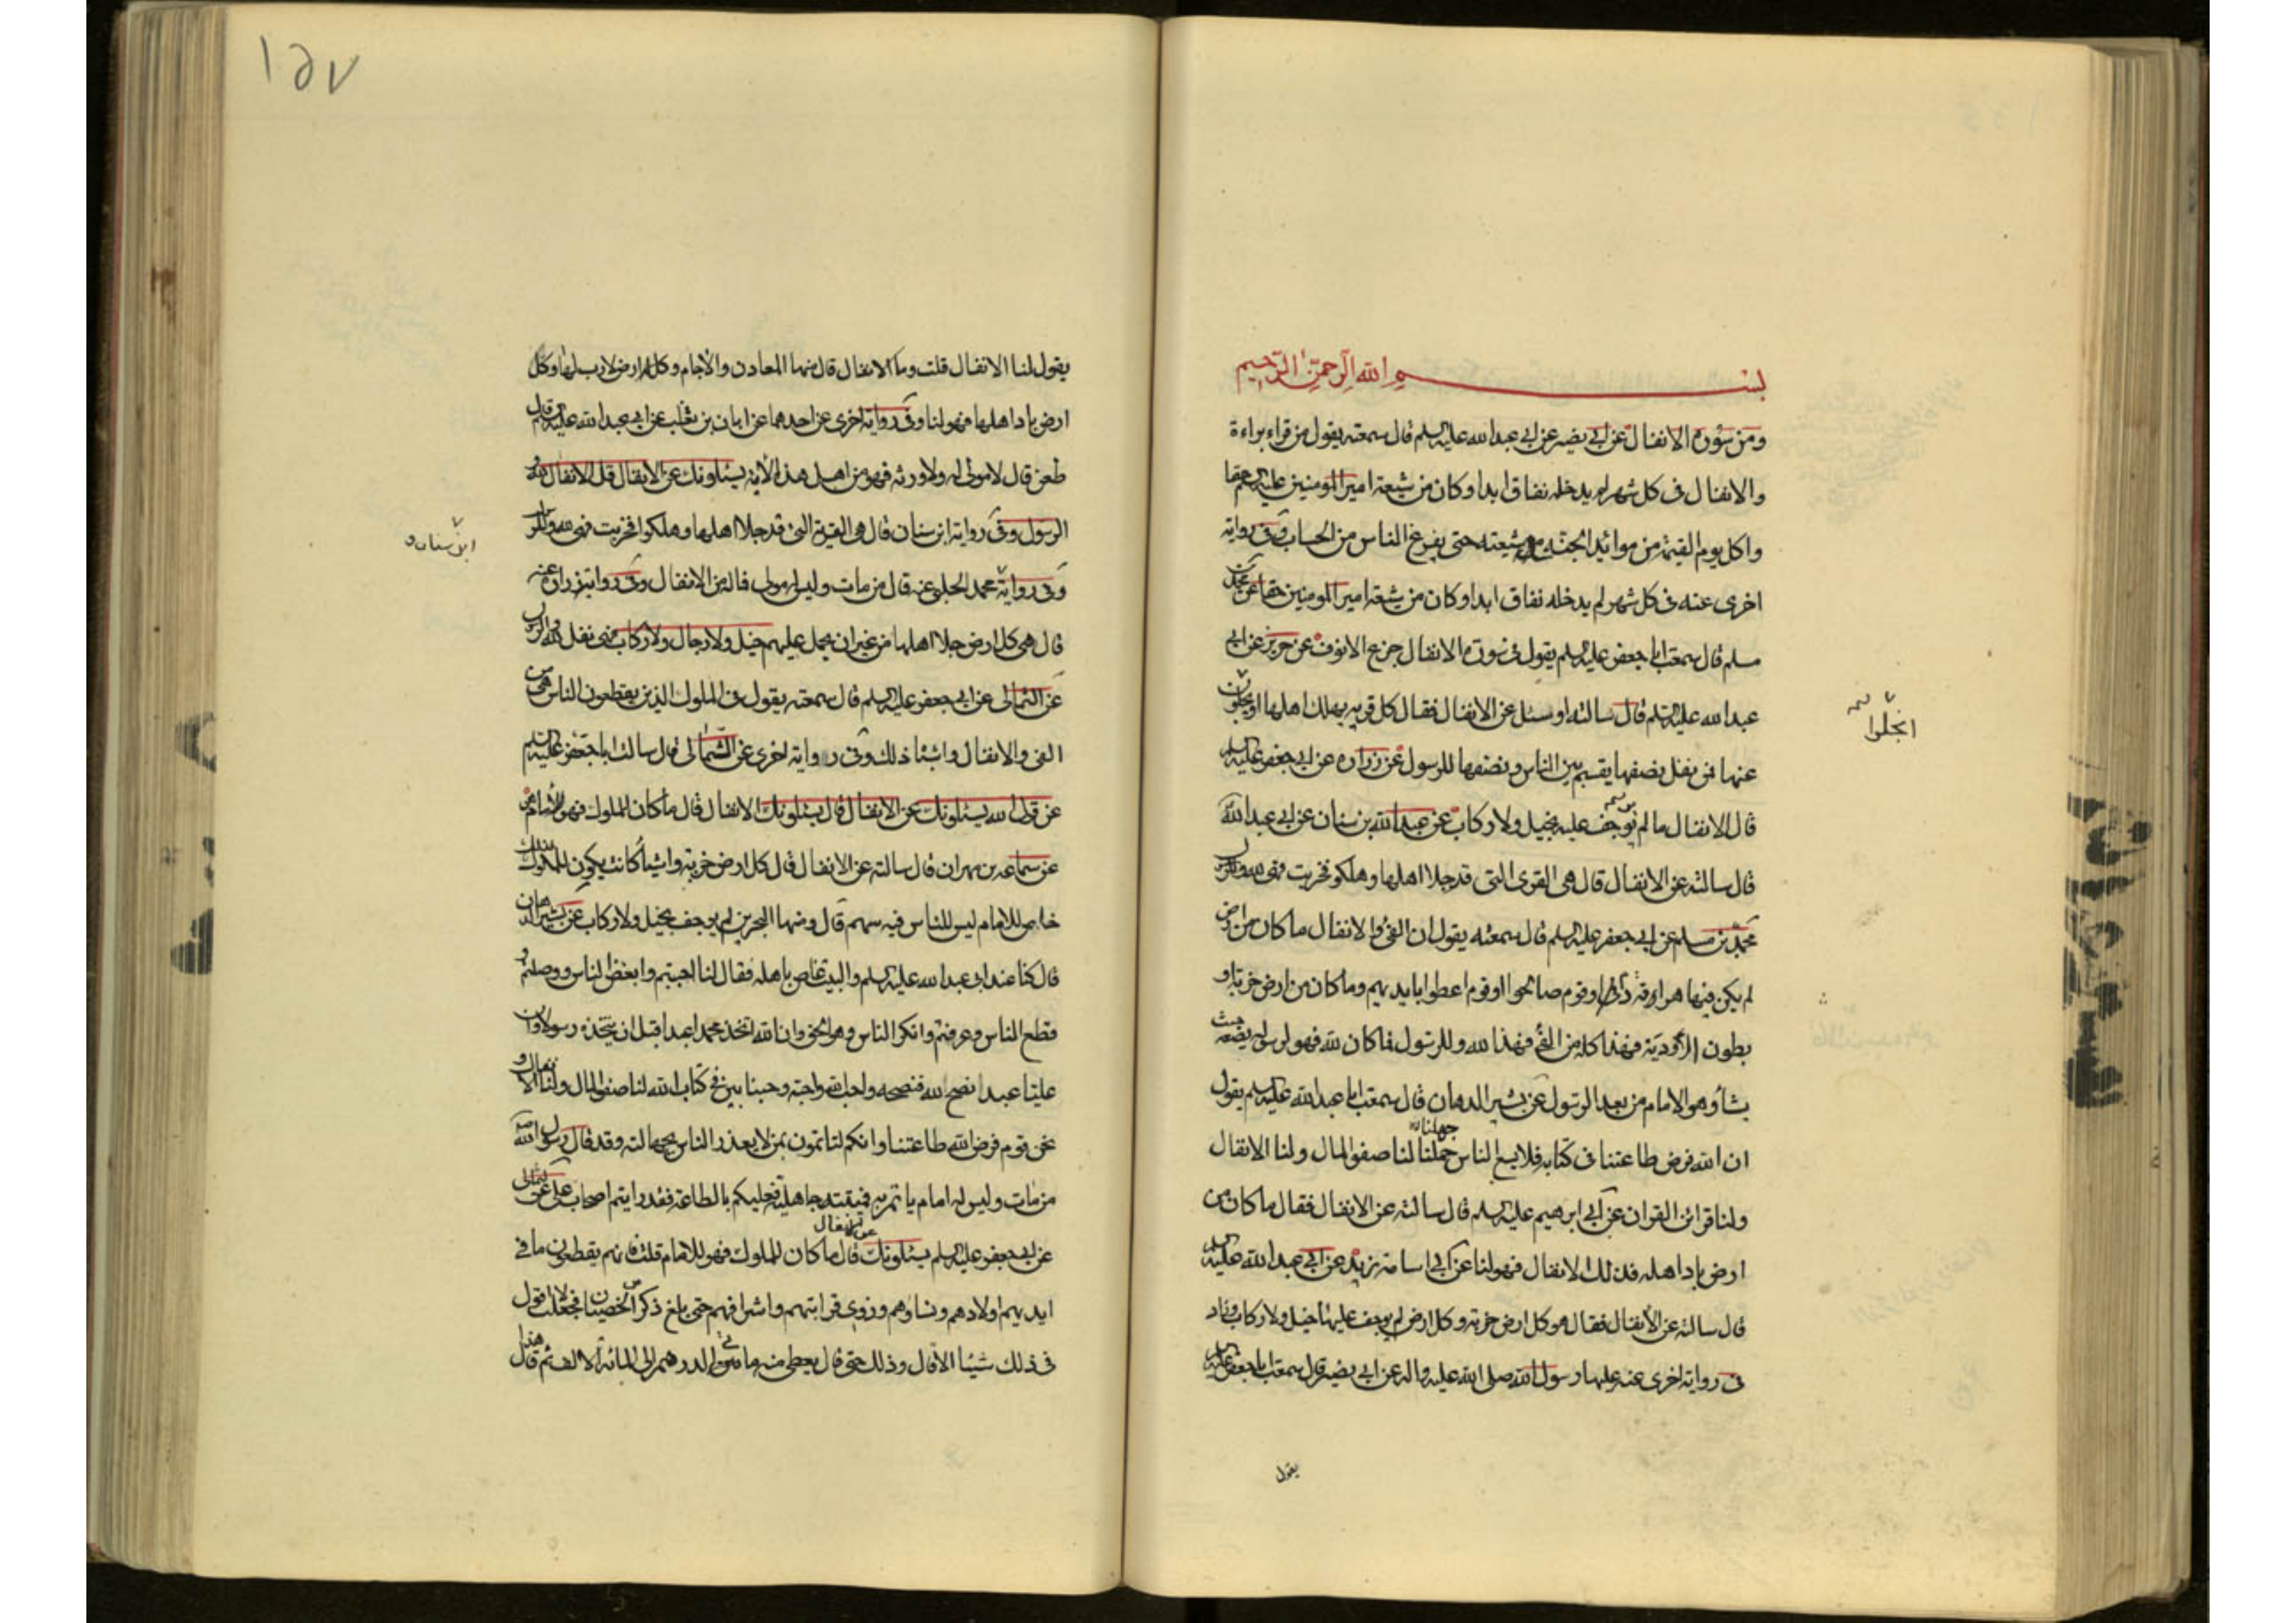 بسم الله الرحمن الرحيم
ومن سورة الانفال عن ابى بصير عن ابى عبدالله عليه السلم قال سمعته يقول من قراء براءة
والانفال فى كل شهر لم يدخله نفاق ابدا وكان من شيعة امير المومنين عليه السلم حقا
واكل يوم القيمة من موائد الجنة مع شيعته حتى يفرغ الناس من الحساب وفى رواية
اخرى عنه فى كل شهر لم يدخله نفاق ابدا وكان من شيعة امير المومنين حقا عن محمد بن
مسلم قال سمعت ابا جعفر عليه السلم يقول فى سورة الانفال جزع الانوف عن حريز عن ابى
عبدالله عليه السلم قال سالته او سئل عن الانفال فقال كل قرية يهلك اهلها او يجلون
انجلوا
عنها فهى نفل نصفها يقسم بين الناس ونصفها للرسول عن زرارة عن ابى جعفر عليه السلم
قال الانفال ما لم يوجف عليه بخيل ولا ركاب عن عبدالله بن سنان عن ابى عبدالله
قال سالته عن الانفال قال هى القرى التى قد جلا اهلها وهلكو فخربت فهى لله وللرسول
محمد بن مسلم عن ابى جعفر عليه السلم قال سمعته يقول ان الفئ والانفال ما كان من ارض
لم يكن فيها هراقة دم او قوم صالحوا او قوم اعطوا بايديهم وما كان من ارض خربة او
بطون الاودية فهذا كله من الفئ فهذا لله وللرسول فما كان لله فهو لرسوله يضعه حيث
يشاؤ هو الامام من بعد الرسول عن بشير الدهان قال سمعت ابا عبدالله عليه السلم يقول
جهلنا
ان الله فرض طاعتنا فى كتابه فلا يسع الناس حملنا لنا صفو المال ولنا الانفال
ولنا قرائن القران عن ابى ابرهيم عليه السلم قال سالته عن الانفال فقال ما كان من
ارض باد اهله فذلك الانفال فهو لنا عن ابى اسامة زيد عن ابى عبدالله عليه السلم
قال سالته عن الانفال فقال هو كل ارض خربة وكل ارض لم يوجف عليها خيل ولا ركاب وزاد
فى رواية اخرى عنه عليها رسول الله صلى الله عليه واله عن ابى بصير قال سمعت ابا جعفر عليه السلم
يقول
١٥٧
يقول لنا الانفال قلت وما الانفال قال منها المعادن والاجام وكل ارض لا رب لها وكل
ارض باد اهلها فهو لنا وفى رواية اخرى عن احدهما عن ابان بن تغلب عن ابى عبدالله عليه السلم قال
طعن قال لا مولى له ولا ورثه فهو من اهل هذه الاية يسئلونك عن الانفال قل الانفال لله و
الرسول وفى رواية ابن سنان قال هى القرية التى قد جلا اهلها وهلكوا فخربت فهى لله وللرسول
ابن سنان و
وفى رواية محمد الحلبى عنه قال من مات وليس له مولى فماله من الانفال وفى رواية زرارة عنه
قال هى كل ارض جلا اهلها من غير ان يحمل عليهم خيل ولا رجال ولا ركاب فهى نفل لله والرسول
عن الثمالى عن ابى جعفر عليه السلم قال سمعته يقول فى الملوك الذين يقطعون الناس هى من
الفئ والانفال واشباه ذلك وفى رواية اخرى عن الثمالى قال سالت ابا جعفر عليه السلم
عن قول الله يسئلونك عن الانفال قال يسئلونك الانفال قال ما كان للملوك فهو للامام
عن سماعة بن مهران قال سالته عن الانفال قال كل ارض خربة واشيا كانت يكون للملوك فذلك
خاص للامام ليس للناس فيه سهم قال ومنها البحرين لم يوجف بخيل ولا ركاب عن بشير الدهان
قال كنا عند ابى عبدالله عليه السلم والبيت غاص باهله فقال لنا احببتم وابغض الناس ووصلتم و
قطع الناس وعرفتم وانكر الناس وهو الحق وان الله اتخذ محمدا عبدا قبل ان يتخذه رسولا وان
عليا عبدا نصح لله فنصحه واحب الله واحبه وحبنا بين فى كتاب الله لنا صفو المال ولنا الانفال و
نحن قوم فرض الله طاعتنا وانكم لتاتمون بمن لا يعذر الناس بجهالته وقد قال رسول الله
من مات وليس له امام ياتم به فميتته جاهلية فعليكم بالطاعة فقد رايتم اصحاب على عن الثمالى
عن الانفال
عن ابى جعفر عليه السلم يسئلونك قال ما كان للملوك فهو للامام قلت فانهم يقطعون ما فى
ايديهم اولادهم ونساؤهم وذوى قرابتهم واشرافهم حتى بلغ ذكر من الخصيان فجعلت لا اقول
فى ذلك شيئا الا قال وذلك حتى قال يعطى منه ما بين الدرهم الى المائة الالف ثم قال هذا